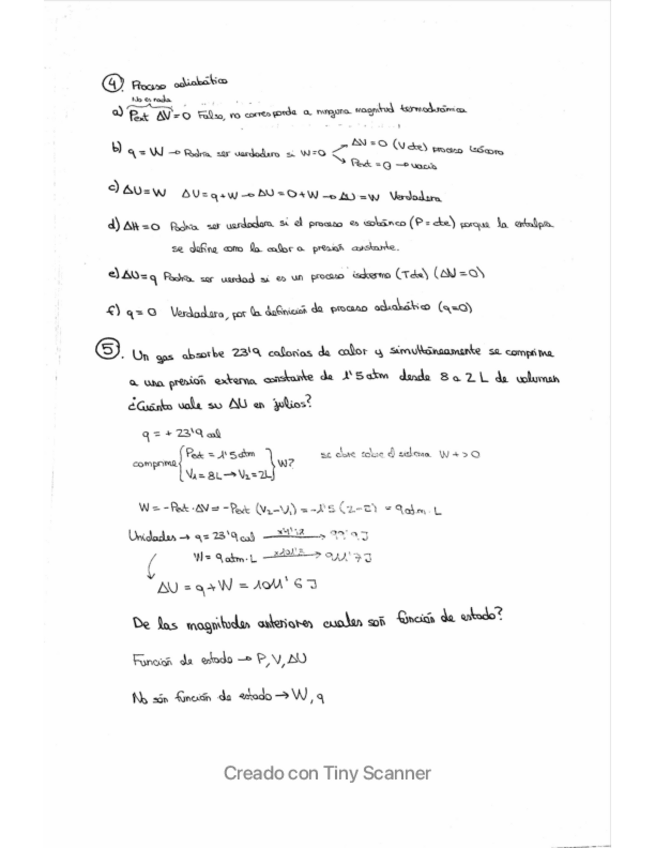 ④. Proceso adiabático
No es nada
a) Pext ΔV=0 Falso, no corresponde a ninguna magnitud termodinámica
b) q = W → Podría ser verdadero si W=0 ΔV=0 (V cte) proceso isócoro
Pext = 0 → vacío
c) ΔU=W ΔU=q+W → ΔU=0+W → ΔU=W Verdadera
d) ΔH=0 Podría ser verdadera si el proceso es isobárico (P=cte) porque la entalpía
se define como la calor a presión constante.
e) ΔU=q Podría ser verdad si es un proceso isotermo (T cte) (ΔU=0)
f) q=0 Verdadera, por la definición de proceso adiabático (q=0)
⑤. Un gas absorbe 23'9 calorías de calor y simultáneamente se comprime
a una presión externa constante de 1'5 atm desde 8 a 2 L de volumen
¿Cuánto vale su ΔU en julios?
q = + 23'9 cal
comprime { Pext = 1'5 atm } W? se obre sobre el sistema W + > 0
V1 = 8L → V2 = 2L
W = -Pext · ΔV = -Pext (V2-V1) = -1'5 (2-8) = 9 atm · L
Unidades → q = 23'9 cal x4'18 → 99'9 J
W = 9 atm·L x101'3 → 911'7 J
ΔU = q + W = 1011'6 J
De las magnitudes anteriores cuales son función de estado?
Función de estado → P, V, ΔU
No són función de estado → W, q
Creado con Tiny Scanner